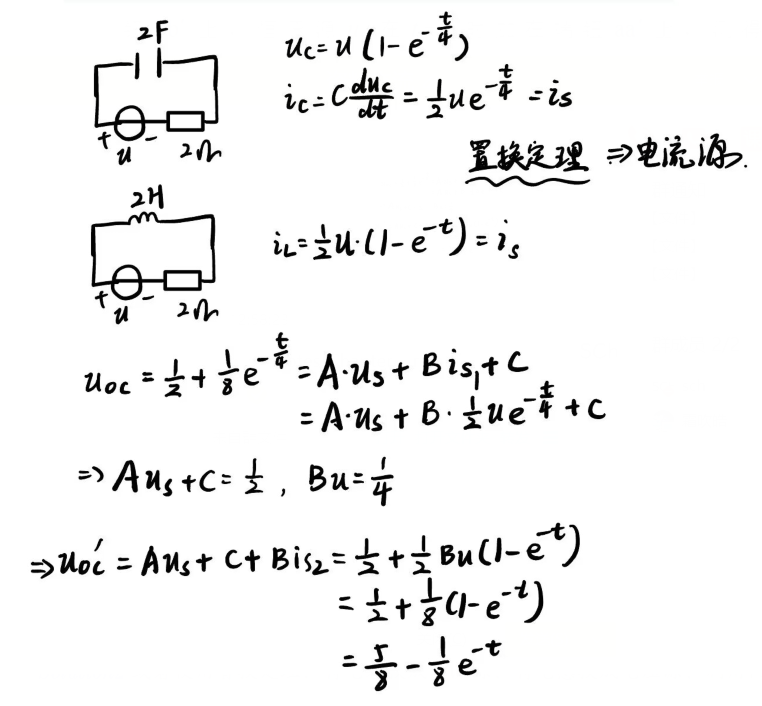 2F
+ u - 2Ω
u_C = u(1-e^{-t/4})
i_C = C du_C/dt = 1/2 u e^{-t/4} = i_s
置换定理 ⇒电流源.
2H
+ u - 2Ω
i_L = 1/2 u·(1-e^{-t}) = i_s
u_{OC} = 1/2 + 1/8 e^{-t/4} = A·u_s + B i_{s1} + C
= A·u_s + B·1/2 u e^{-t/4} + C
⇒ A u_s + C = 1/2 , B u = 1/4
⇒ u_{OC}' = A u_s + C + B i_{s2} = 1/2 + 1/2 B u (1-e^{-t})
= 1/2 + 1/8 (1-e^{-t})
= 5/8 - 1/8 e^{-t}